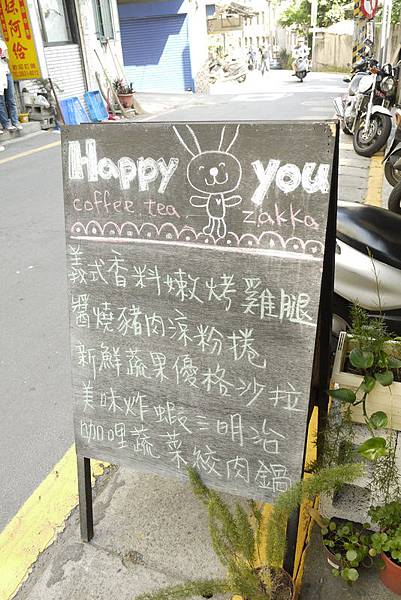 Happy you
coffee. tea zakka
義式香料嫩烤雞腿
醬燒豬肉涼粉捲
新鮮蔬果優格沙拉
美味炸蝦三明治
咖哩蔬菜絞肉鍋